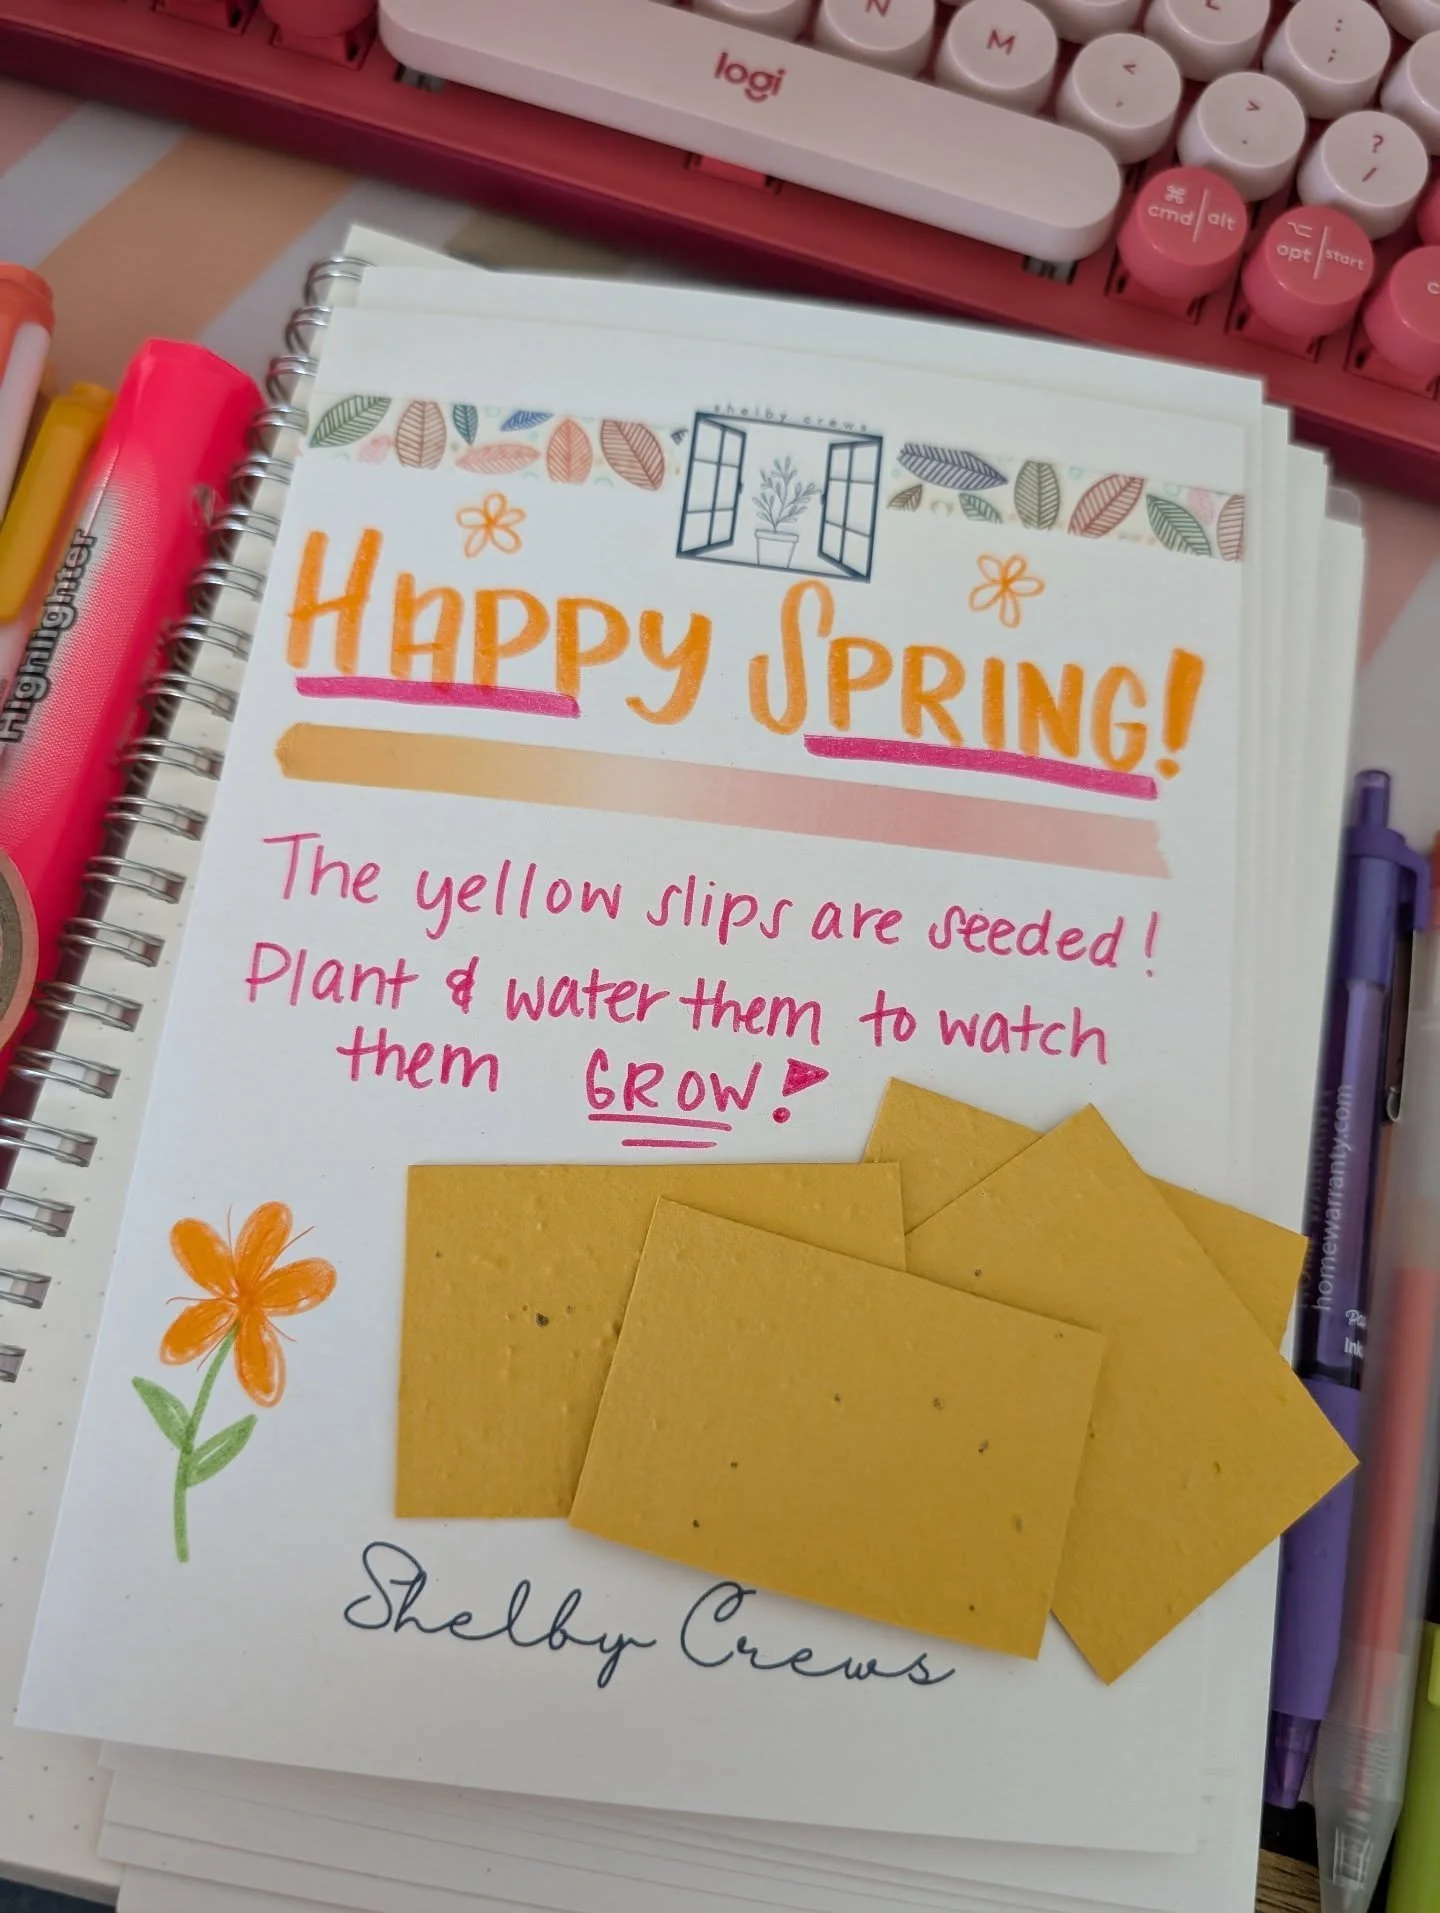 N
M
L
logi
<
,
:
;
>
.
?
/
⌘
cmd|alt
⌥
opt|start
c
shelby crews
HAPPY SPRING!
The yellow slips are seeded!
Plant & water them to watch
them GROW!
Shelby Crews
Highlighter
homewarranty.com